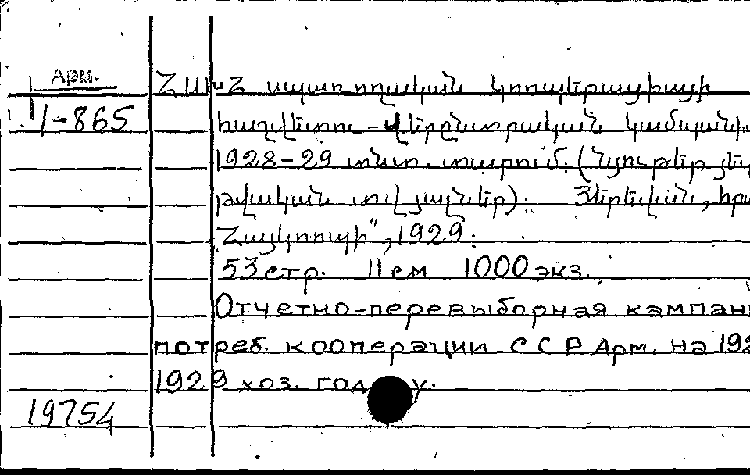 Арм.
ՀՍԽՀ սպառողական կոոպերացիայի
1/-865
հաշվետու-վերընտրական կամպանի
1928-29 տնտ. տարում. (Նյութեր
թվական տվյալներ). Յերեվան, հրա
„Հայկոոպի", 1929.
53 стр. 11 см 1000 экз.
Отчетно-перевыборная кампани
потреб. кооперации ССР Арм. на 192
1929 хоз. году.
19754